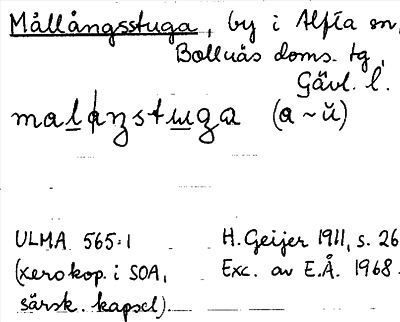 Mållångsstuga, by i Alfta sn,
Bollnäs doms. tg,
Gävl. l.
malåŋstuga (a ~ ŭ)
ULMA 565:1 H. Geijer 1911, s. 26
(xerokop. i SOA, Exc. av E.Å. 1968.
särsk. kapsel).